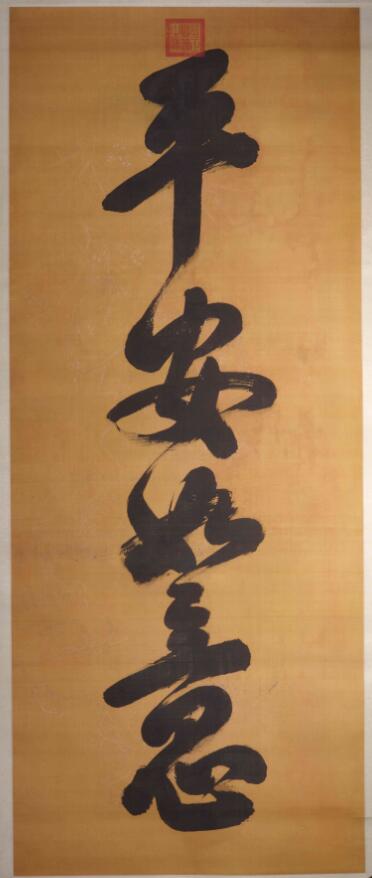 平安如意